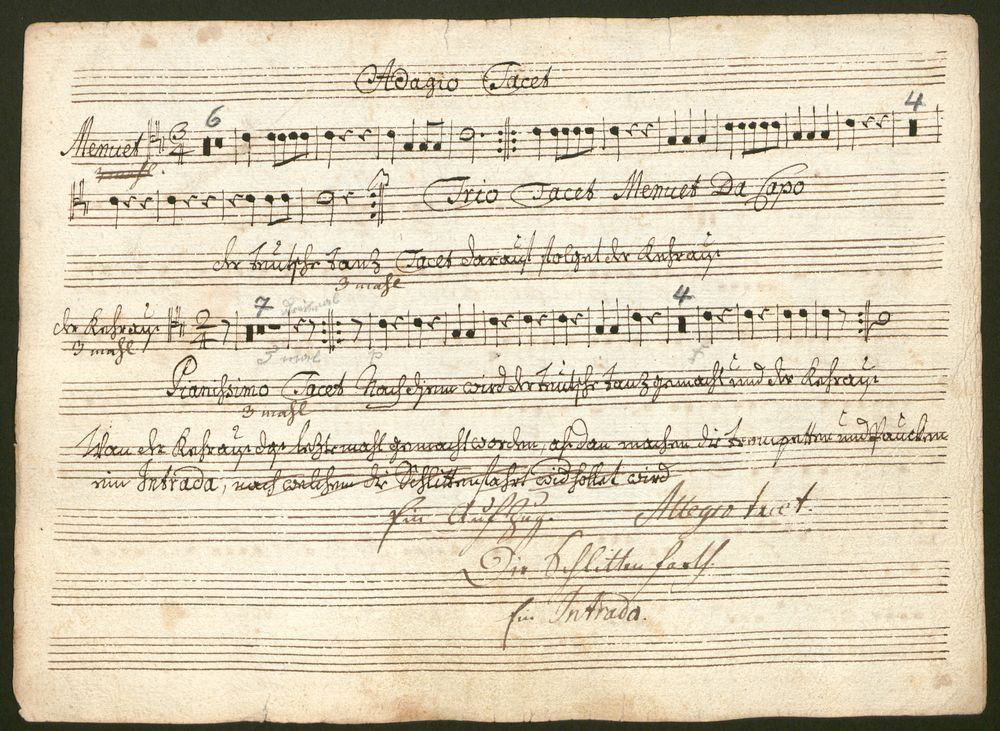 Adagio Tacet
6
4
Menuet 3 4
Trio Tacet Menuet Da Capo
der teutsche tantz Tacet darauf folget der Kehrauß
3 mahl
7
4
der Kehrauß 2 4
3 mahl
3 mal
p
f
Pianissimo Tacet Nach diesem wird der teutsche tantz gemacht und der Kehrauß
3 mahl
Wan der Kehrauß das letzte mahl gemacht worden, alsdan machen die trompetten und Paucken
ein Intrada, nach welchem die Schlittenfahrt widhollet wird
Ein Aufzug. Allegro tacet.
Die Schlitten farth.
Ein Intrada.